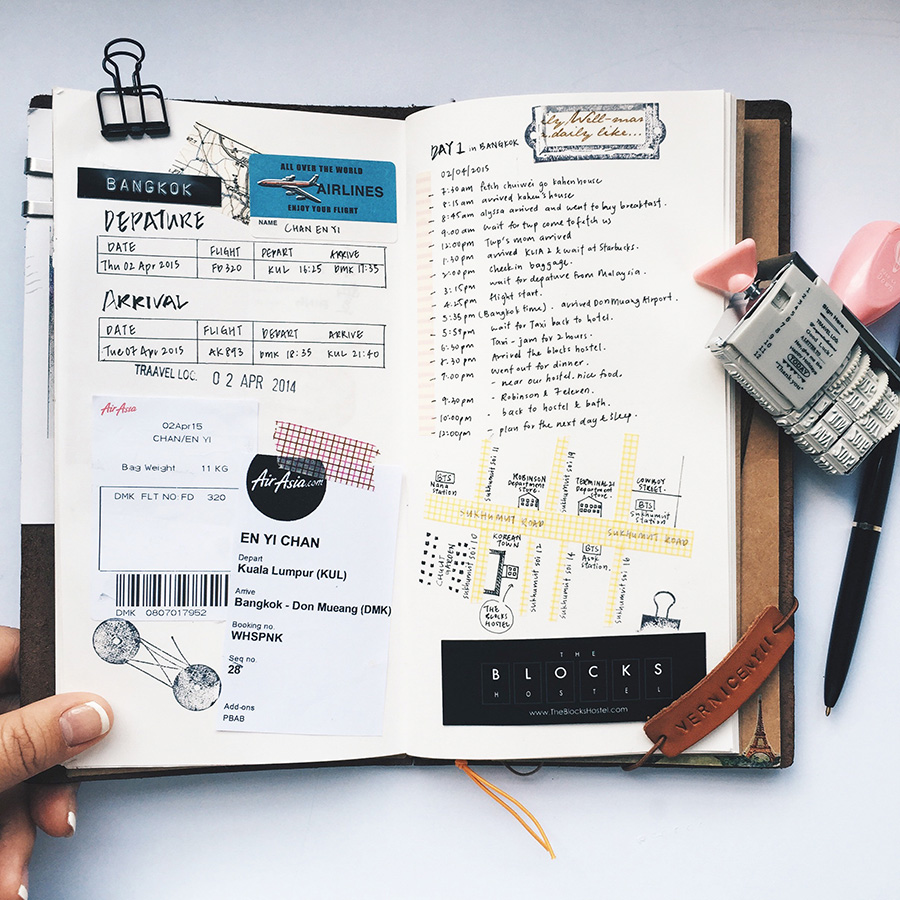 BANGKOK
ALL OVER THE WORLD
AIRLINES
ENJOY YOUR FLIGHT
NAME
CHAN EN YI
DEPATURE
DATE FLIGHT DEPART ARRIVE
Thu 02 Apr 2015 FD320 KUL 16:25 DMK 17:35
ARRIVAL
DATE FLIGHT DEPART ARRIVE
Tue 07 Apr 2015 AK893 DMK 18:35 KUL 21:40
TRAAVEL LOG: 02 APR 2014
AirAsia
02Apr15
CHAN/EN YI
Bag Weight 11 KG
DMK FLT NO:FD 320
DMK 0807017952
AirAsia.com
EN YI CHAN
Depart
Kuala Lumpur (KUL)
Arrive
Bangkok - Don Mueang (DMK)
Booking no.
WHSPNK
Seq no
28
Add-ons
PBAB
ly Well-mas
daily like...
DAY 1 in BANGKOK
02/04/2015
- 7:30am fetch chuiwei go kahen house
- 8:15am arrived kahen's house
- 8:45am alyssa arrived and went to buy breakfast.
- 9:00am wait for twp come to fetch us
- 12:00pm Twp's mom arrived
- 1:30pm arrived KLIA 2 & wait at Starbucks.
- 2:00pm check in baggage.
- 3:15pm wait for depature from Malaysia.
- 4:25pm flight start.
- 5:35pm (Bangkok time). arrived Don Muang Airport.
- 5:55pm wait for Taxi back to hotel.
- 6:30pm Taxi - jam for 2 hours.
- 8:30pm Arrived the blocks hostel.
- 9:00pm went out for dinner.
- near our hostel. nice food.
- 9:30pm - Robinson & 7 eleven.
- 10:00pm - back to hostel & bath.
- 12:00pm - plan for the next day & sleep.
BTS
Nana station
sukhumvit soi 11
ROBINSON Department store.
sukhumvit soi 19
TERMINAL 21 Department store.
COWBOY STREET.
BTS
sukhumvit station
SUKHUMVIT ROAD
SUKHUMVIT ROAD
CHUVIT GARDEN
sukhumvit soi 10
KOREAN TOWN
sukhumvit soi 12
sukhumvit soi 14
BTS
Asok station.
sukhumvit soi 16
THE BLOCKS HOSTEL
THE
BLOCKS
HOSTEL
www.TheBlocksHostel.com
VERNICENYII
Sign Here:
TRAVEL LOG
Good Luck!
Happy Holiday
TODAY
Thank you!